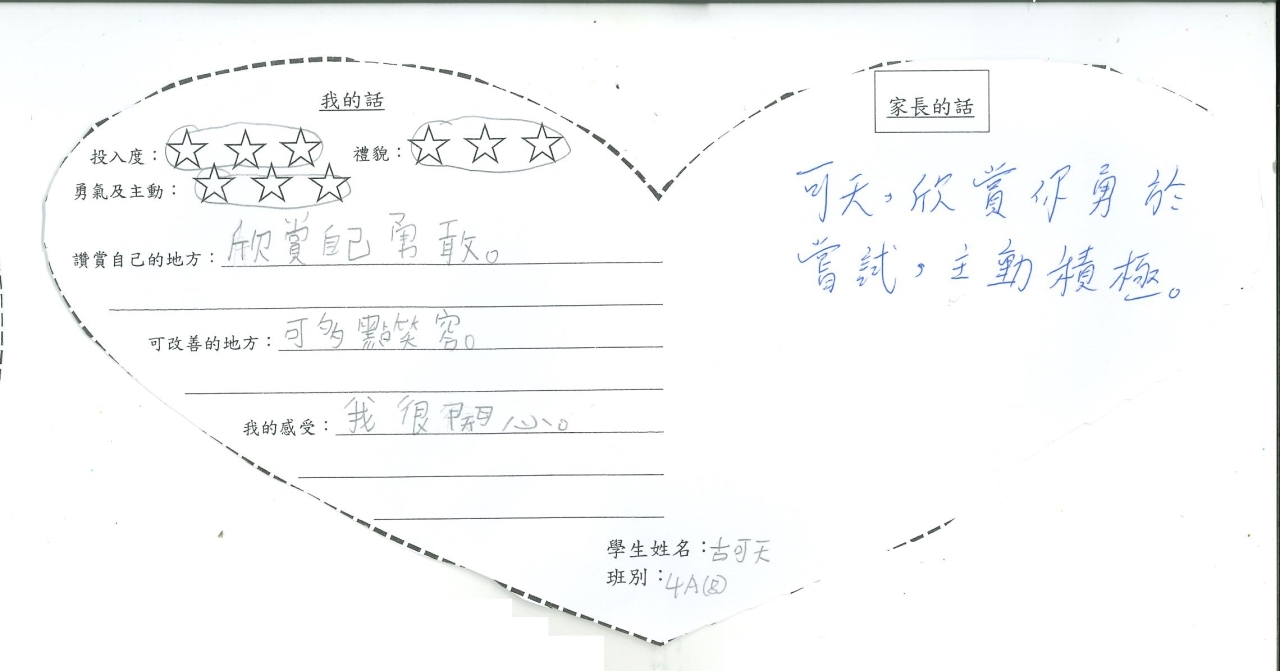 我的話
投入度：☆ ☆ ☆ 禮貌：☆ ☆ ☆
勇氣及主動：☆ ☆ ☆
讚賞自己的地方：欣賞自己勇敢。
可改善的地方：可多點笑容。
我的感受：我很開心。
家長的話
可天，欣賞你勇於
嘗試，主動積極。
學生姓名：古可天
班別：4A(8)